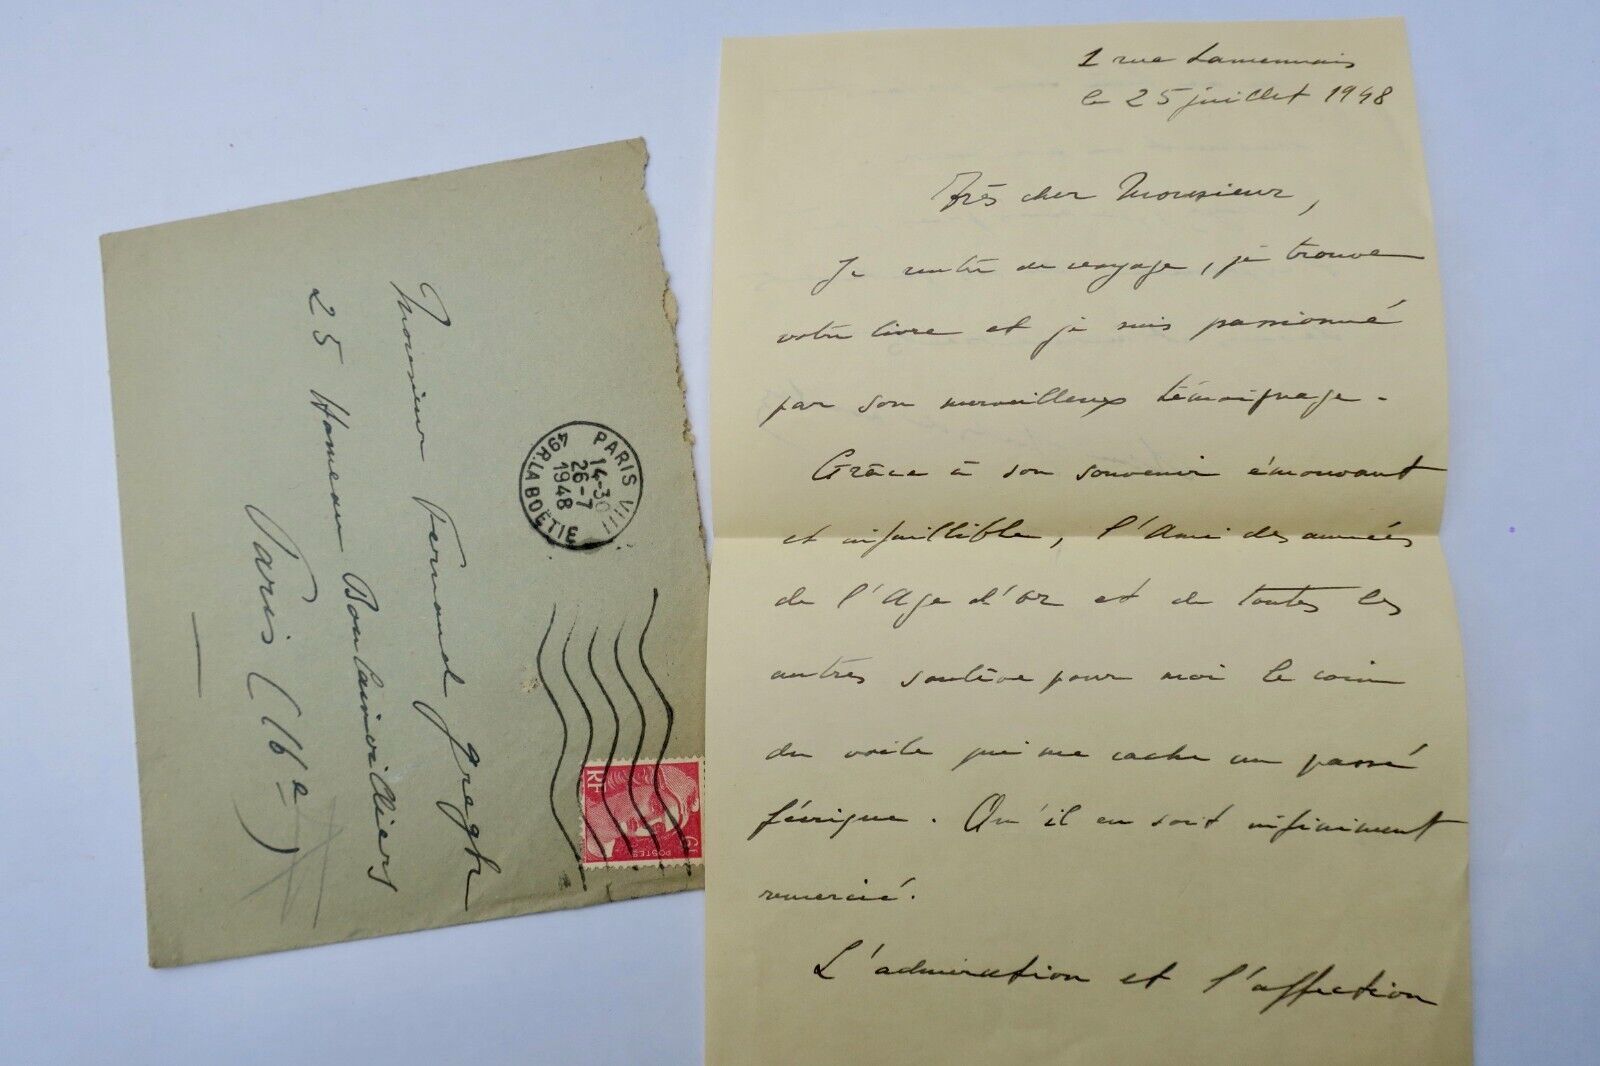 1 rue Lamennais
le 25 juillet 1948
Très cher Monsieur,
Je rentre de voyage, je trouve
votre livre et je suis passionné
par son merveilleux témoignage.
Grâce à son souvenir émouvant
et infaillible, l'Ami des années
de l'Age d'or et de toutes les
autres soulève pour moi le coin
du voile qui me cache un passé
féerique. Qu'il en soit infiniment
remercié.
L'admiration et l'affection
Monsieur Fernand Gregh
25 Hameau Boulainvilliers
Paris (16e)
PARIS VIII
14-30
26-7
1948
49 R. LA BOËTIE
RF
POSTES